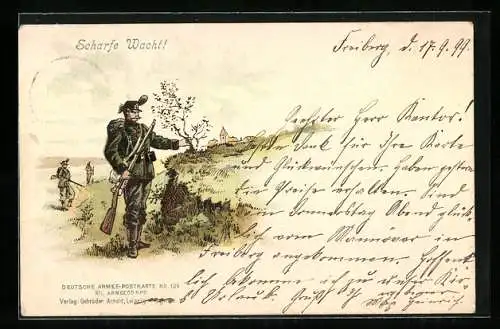 Scharfe Wacht!
Freiberg, d. 17.9.99.
Geehrter Herr Kantor!
Dank für Ihre Karte
und Glückwünschen. Haben gestern
die Preise erhalten. Sind
Donnerstag Abend glück-
lich vom Manöver in
Freiberg angekommen. Hoffent-
lich bekomme ich zu unser
Urlaub. Heinrich.
DEUTSCHE ARMEE-POSTKARTE NO. 124
XII. ARMEECORPS
Verlag: Gebrüder Arnold, Leipzig